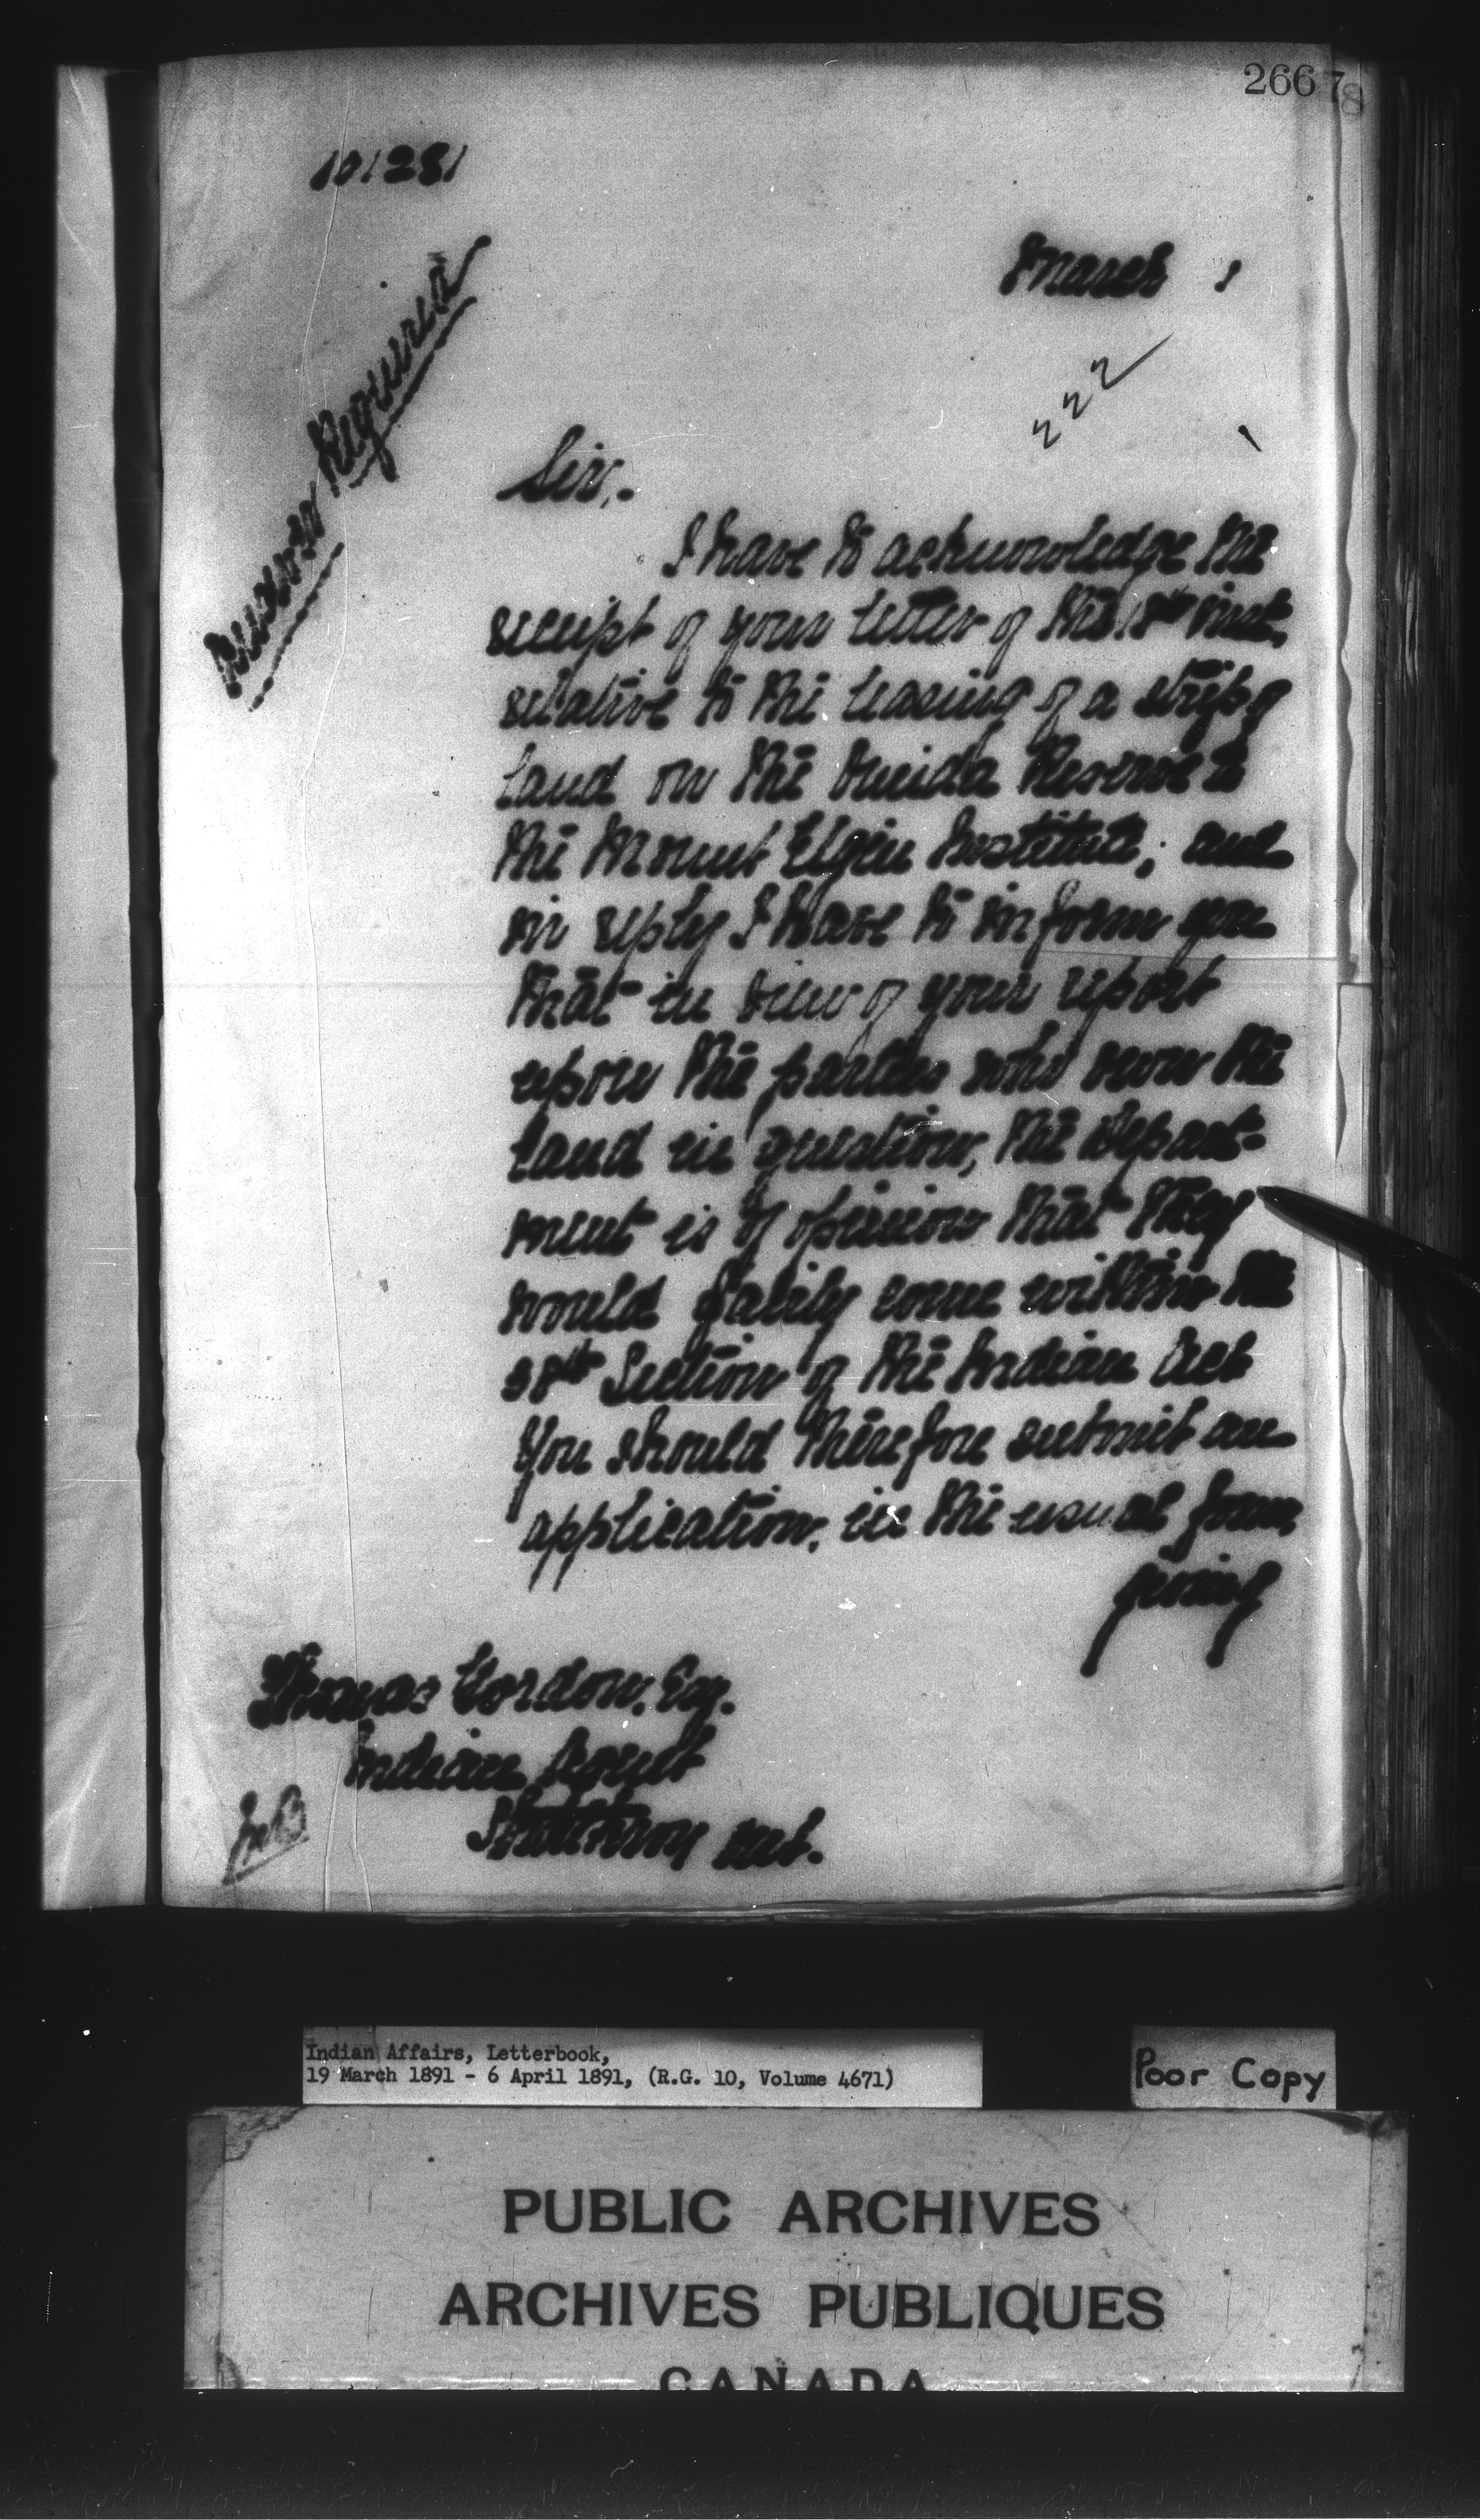 266
78
101281
March 1
222
Answer Required
Sir,.
I have to acknowledge the
receipt of your letter of the 18th inst.
relative to the leasing of a strip of
land on the Oneida Reserve to
the Mount Elgin Institute; and
in reply I have to inform you
that in view of your report
upon the parties who own the
land in question, the Depart-
ment is of opinion that they
would fairly come within the
38th Section of the Indian Act
You should therefore submit an
application, in the usual form,
giving
Thomas Gordon, Esq.
Indian Agent
Strathroy Ont.
Indian Affairs, Letterbook,
19 March 1891 - 6 April 1891, (R.G. 10, Volume 4671)
Poor Copy
PUBLIC ARCHIVES
ARCHIVES PUBLIQUES
CANADA